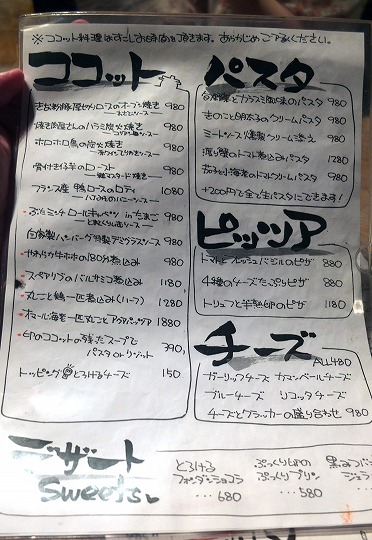 ※ ココット料理はすこしお時間を頂きます。あらかじめご了承ください。
ココット
オーブン焼き 980
焼き肉屋さんのハラミ炭火焼き 980
ホロホロ鳥の炭火焼き 980
骨付き仔羊のロースト 980
粒マスタード焼き
フランス産 鴨ロースのロティ 1080
ハブみれのハニーソース
ロールキャベツ 980
自家製ハンバーグ 特製デミグラスソース 980
やわらか牛ホホの180分煮込み 980
・スペアリブのバルサミコ煮込み 1180
・丸ごと鶏一匹煮込み(ハーフ) 1280
・オマール海老一匹丸ごとアクアパッツァ 1880
・印のココットの残ったスープで 390
パスタ or リゾット
トッピング とろけるチーズ 150
パスタ
カラスミ風味のパスタ 980
きのこと卵のクリームパスタ 980
ミートソース燻製クリーム添え 980
渡り蟹のトマト煮込みパスタ 1280
茄子と小海老のトマトクリームパスタ 980
+200円で全て生パスタにできます!
ピッツア
トマトとフレッシュバジルのピザ 880
4種のチーズたっぷりピザ 880
トリュフと半熟卵のピザ 1180
チーズ ALL480
ガーリックチーズ カマンベールチーズ
ブルーチーズ リコッタチーズ
チーズとクラッカーの盛り合わせ 980
デザート
Sweets
とろける
フォンダンショコラ
…680
ぷっくり卵の
ぷっくりプリン
…580
黒みつバ
ジェラ